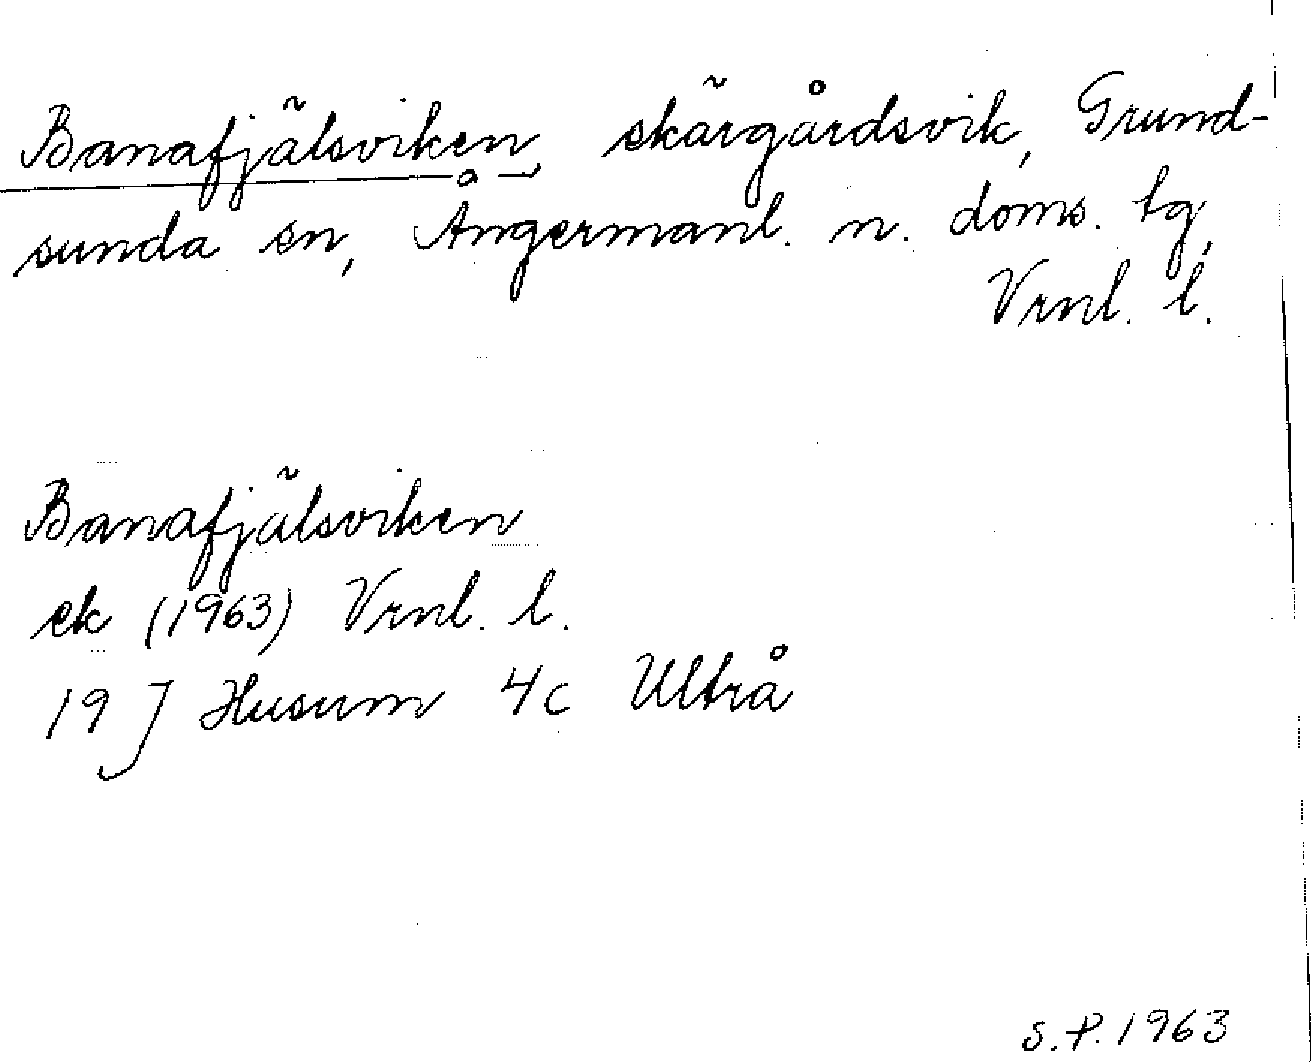 Banafjälsviken, skärgårdsvik, Grund-
sunda sn, Ångermanl. n. doms. tg,
Vrnl. l.
Banafjälsviken
ek (1963) Vrnl. l.
19 J Husum 4c Ultrå
S.P. 1963